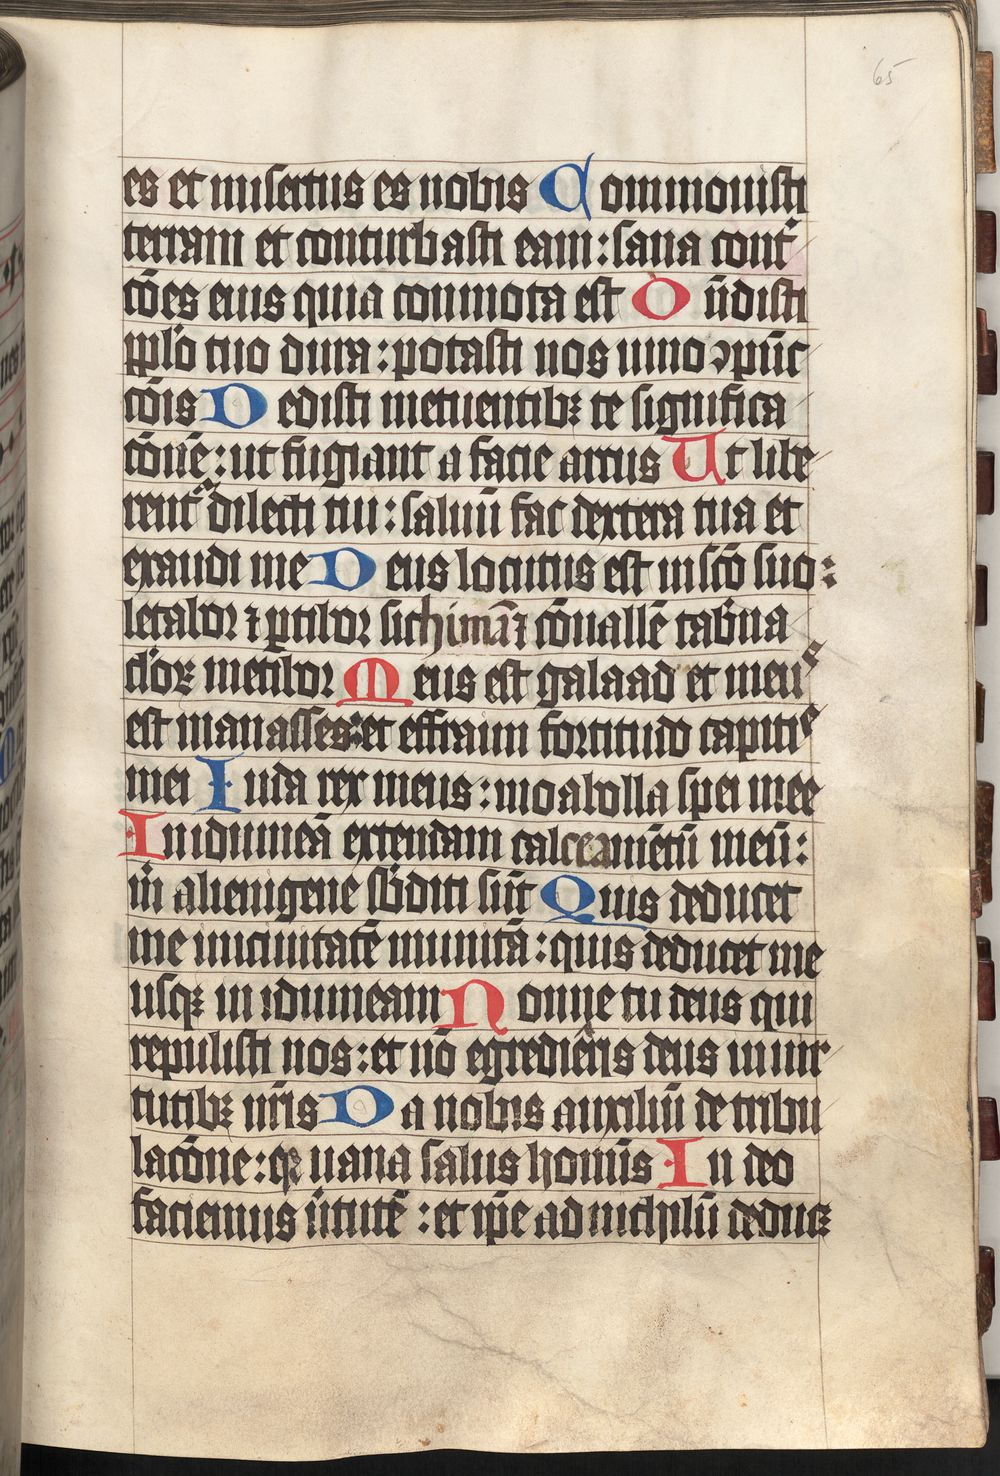 65
es et misertus es nobis Commouisti
terram et conturbasti eam : sana cont͛
cōes eius quia commota est Oñdisti
pplo tuo dura : potasti nos uino ꝯpũc
cōis Dedisti metuentibꝫ te significa
cōnē : ut fugiant a facie arcus Ut libe
rent᷑ dilecti tui : saluũ fac dextera tua et
exaudi me Deus locutus est in scō suo :
letabor ⁊ ꝑtibor sichimā ⁊ cōuallē tab͛na
cl'oꝝ metibor Meus est galaad et meus
est manasses : et effraim fortitudo capitis
mei Iuda rex meus : moab olla spei mee
In idumeā extendam calceamētũ meũ :
m̄ alienigene sb̄diti sũt Quis deducet
me in ciuitatē munitā : quis deducet me
usqꝫ in idumeam Nonne tu deus qui
repulisti nos : et nō egrediēris deus in uir
tutibꝫ nr̄is Da nobis auxiliũ de tribu
lacōne : qꝛ uana salus homīs In deo
faciemus ũtutē : et ip̄e ad nichilũ deducꝫ